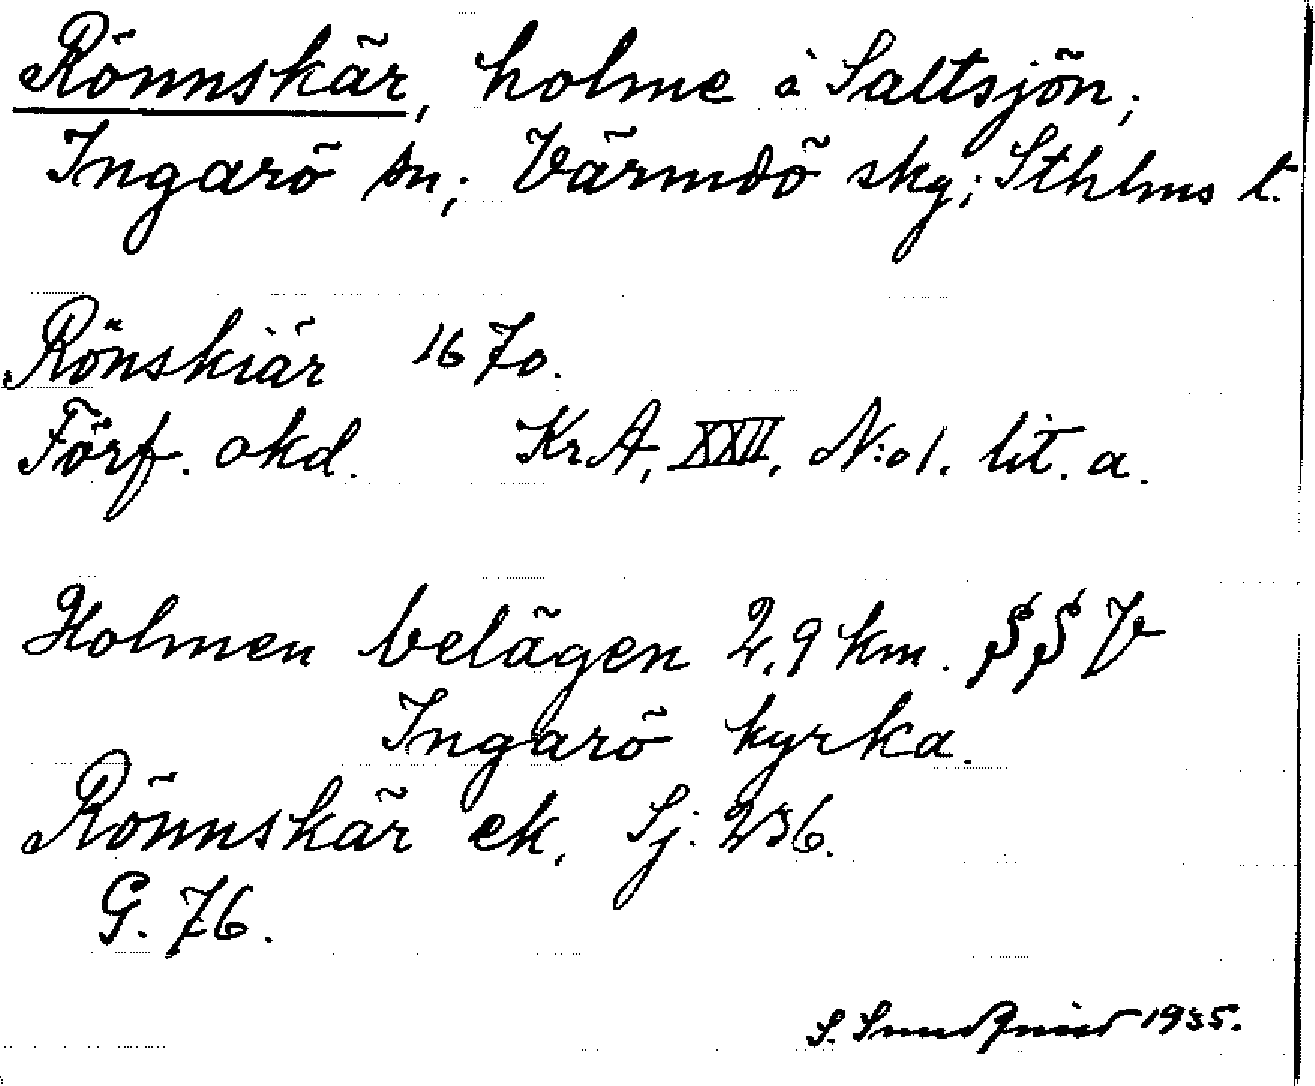 Rönnskär, holme å Saltsjön;
Ingarö sn; Värmdö skg; Sthlms l.
Rönskiär 1670.
Förf. okd. Kr.A, XXII, N:o 1. lit. a.
Holmen belägen 2,9 km. SSV
Ingarö kyrka.
Rönnskär ek. Sj. 236.
G. 76.
S. 1935.